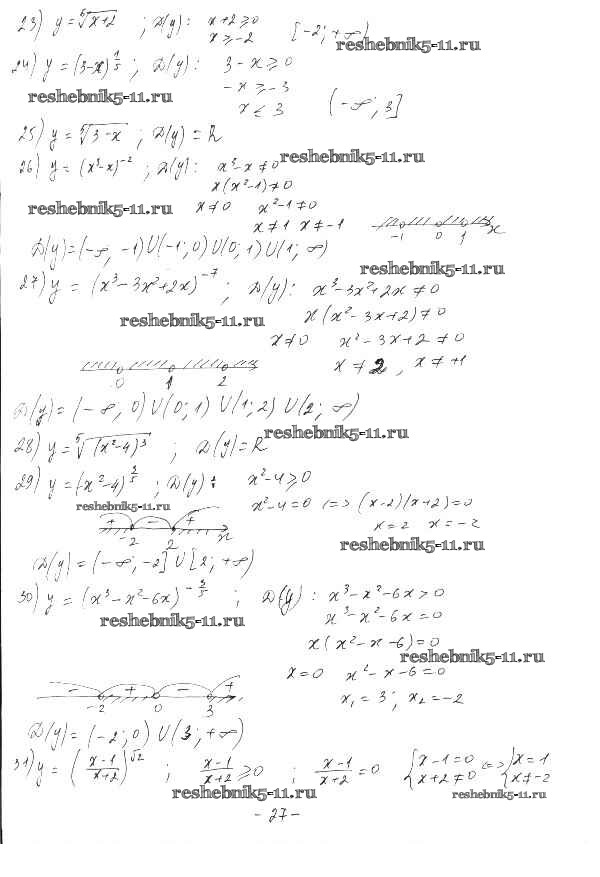 23) y = ⁵√x+2 ; D(y): x+2 ≥ 0
x ≥ -2 [-2; +∞)
reshebnik5-11.ru
24) y = (3-x)^(1/5) ; D(y): 3-x ≥ 0
reshebnik5-11.ru -x ≥ -3
x ≤ 3 (-∞; 3]
25) y = ⁵√3-x ; D(y) = R
reshebnik5-11.ru
26) y = (x³-x)^(-2) ; D(y): x³-x ≠ 0
x(x²-1) ≠ 0
reshebnik5-11.ru x ≠ 0 x²-1 ≠ 0
x ≠ 1 x ≠ -1
-1 0 1 x
D(y) = (-∞, -1) U (-1; 0) U (0; 1) U (1; ∞)
reshebnik5-11.ru
27) y = (x³-3x²+2x)^(-7) ; D(y): x³-3x²+2x ≠ 0
reshebnik5-11.ru x(x²-3x+2) ≠ 0
x ≠ 0 x²-3x+2 ≠ 0
x ≠ 2, x ≠ +1
0 1 2
D(y) = (-∞, 0) U (0; 1) U (1; 2) U (2; ∞)
reshebnik5-11.ru
28) y = ⁵√(x²-4)³ ; D(y) = R
29) y = (x²-4)^(3/5) ; D(y): x²-4 ≥ 0
reshebnik5-11.ru x²-4 = 0 <=> (x-2)(x+2) = 0
x = 2 x = -2
+ - +
-2 2 x
reshebnik5-11.ru
D(y) = (-∞, -2] U [2; +∞)
30) y = (x³-x²-6x)^(-3/5) ; D(y): x³-x²-6x > 0
reshebnik5-11.ru x³-x²-6x = 0
x(x²-x-6) = 0
reshebnik5-11.ru
x = 0 x²-x-6 = 0
- + - +
-2 0 3
x₁ = 3; x₂ = -2
D(y) = (-2; 0) U (3; +∞)
31) y = ((x-1)/(x+2))^(√2) ; (x-1)/(x+2) ≥ 0 ; (x-1)/(x+2) = 0 {x-1 = 0 <=> {x = 1
x+2 ≠ 0 x ≠ -2
reshebnik5-11.ru reshebnik5-11.ru
- 27 -